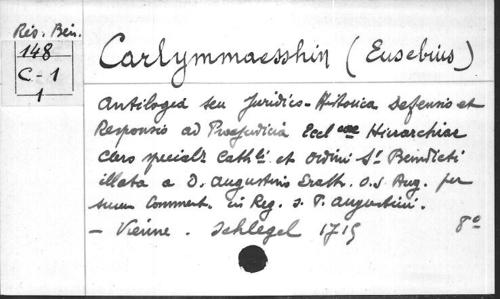 Rés. Bén.
148
C-1
1
Carlymmaesshin (Eusebius)
Antilogia seu Juridico-Historica Defensio et
Responsio ad Praejudicia Eccl eae Hierarchiae
Clero speciali Cathli et ordini Sti Benedicti
illata a D. Augustino Erath. O.S. Aug. per
suum Comment. in Reg. S. P. Augustini.
- Vienne. Schlegel 1715 8°